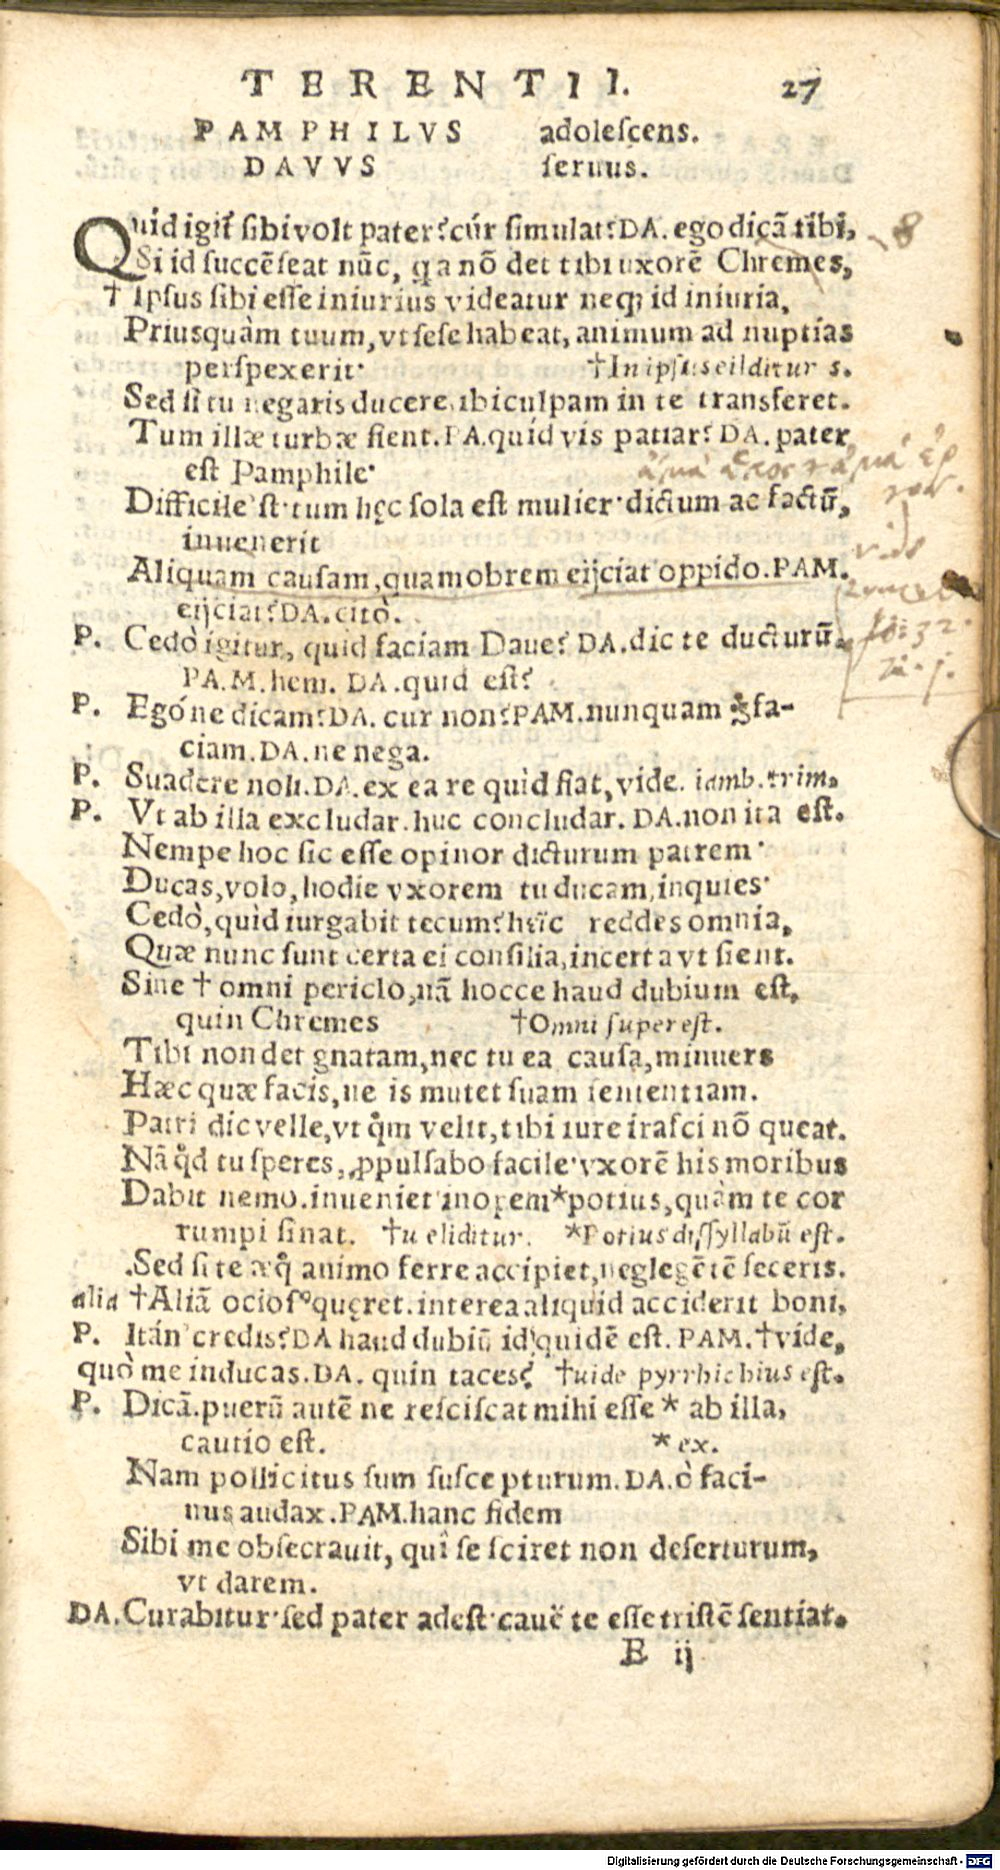 TERENTII. 27
PAMPHILVS adolescens.
DAVVS seruus.
Quid igit̃ sibi volt pater? cúr simulat? DA. ego dicã tibi,
Si id succẽseat nũc, qa nõ det tibi uxorẽ Chremes,
† Ipsus sibi esse iniurius videatur neq; id iniuria,
Priusquàm tuum, vt sese habeat, animum ad nuptias
perspexerit· †In ipsus eilditur s.
Sed si tu negaris ducere, ibi culpam in te transferet.
Tum illæ turbæ fient. PA. quid vis patiar? DA. pater
est Pamphile·
ἅμα ἔπος τ ἅμα ἔρ
γον.
Difficile 'st· tum hęc sola est mulier· dictum ac factũ,
inuenerit
vide
Aliquam causam, quamobrem eijciat oppido. PAM.
eijciat? DA. citò.
P. Cedò igitur, quid faciam Daue? DA. dic te ducturũ.
fo: 32.
PA.M. hem. DA. quid est?
P. Egóne dicam? DA. cur non? PAM. nunquam fa-
ciam. DA. ne nega.
P. Suadere noli. DA. ex ea re quid fiat, vide. iamb. trim.
P. Vt ab illa excludar. huc concludar. DA. non ita est.
Nempe hoc sic esse opinor dicturum patrem·
Ducas, volo, hodie vxorem tu ducam, inquies·
Cedò, quid iurgabit tecum? hîc reddes omnia,
Quæ nunc sunt certa ei consilia, incerta vt sient.
Sine † omni periclo, nã hocce haud dubium est,
quin Chremes †Omni superest.
Tibi non det gnatam, nec tu ea causa, minuers
Hæc quæ facis, ne is mutet suam sententiam.
Patri dic velle, vt q̊m velit, tibi iure irasci nõ queat.
Nã q̊d tu speres, ꝓpulsabo facile· vxorẽ his moribus
Dabit nemo. inueniet inopem *potius, quàm te cor
rumpi sinat. †u eliditur. *Potius dissyllabũ est.
Sed si te æq̊ animo ferre accipiet, neglegẽtẽ feceris.
alia †Aliã ocios⁹ quęret. interea aliquid acciderit boni,
P. Itán' credis? DA haud dubiũ id quidẽ est. PAM. †vide,
quò me inducas. DA. quin taces? †uide pyrrhichius est.
P. Dicã. puerũ autẽ ne resciscat mihi esse * ab illa,
cautio est. * ex.
Nam pollicitus sum suscepturum. DA. ò faci-
nus audax. PAM. hanc fidem
Sibi me obsecrauit, qui se sciret non deserturum,
vt darem.
DA. Curabitur· sed pater adest· cauë te esse tristẽ sentiat.
E ij
Digitalisierung gefördert durch die Deutsche Forschungsgemeinschaft - DFG